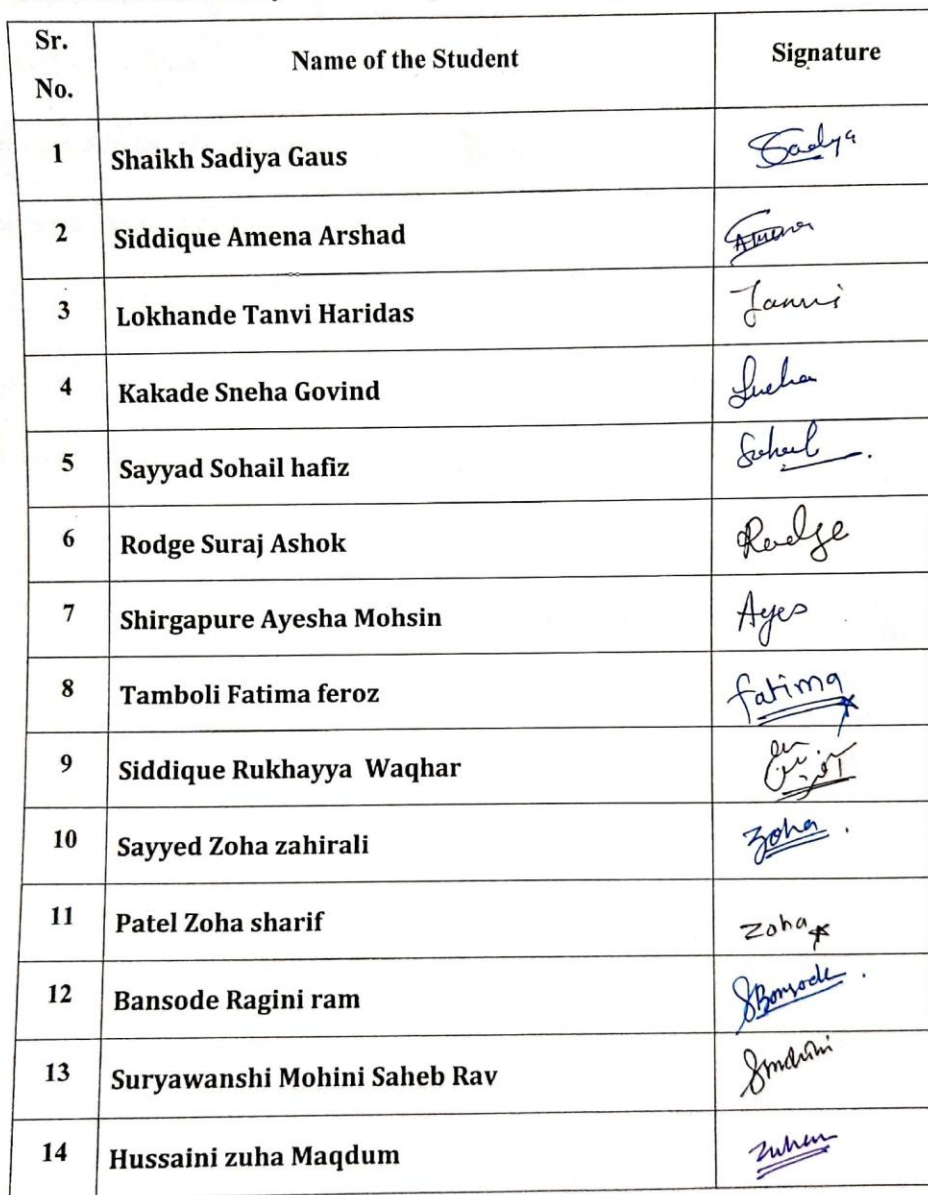 Sr. No. Name of the Student Signature
1 Shaikh Sadiya Gaus Sadya
2 Siddique Amena Arshad Amena
3 Lokhande Tanvi Haridas Tanvi
4 Kakade Sneha Govind Sneha
5 Sayyad Sohail hafiz Sohail
6 Rodge Suraj Ashok Rodge
7 Shirgapure Ayesha Mohsin Ayes
8 Tamboli Fatima feroz fatima
9 Siddique Rukhayya Waqhar
10 Sayyed Zoha zahirali Zoha
11 Patel Zoha sharif zoha
12 Bansode Ragini ram
13 Suryawanshi Mohini Saheb Rav Smohini
14 Hussaini zuha Maqdum